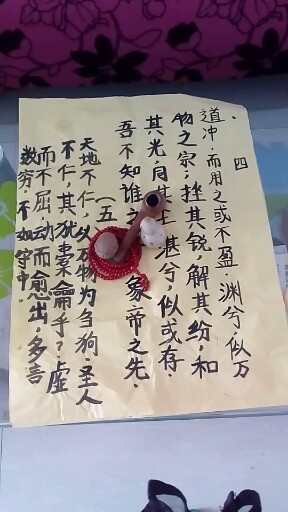 四
道冲，而用之或不盈 渊兮，似万
物之宗；挫其锐，解其纷，和
其光同其尘 湛兮，似或存.
吾不知谁之 象帝之先.
（五
天地不仁，以万物为刍狗圣人
不仁，其犹橐龠乎？虚
而不屈动而愈出，多言
数穷不如守中.